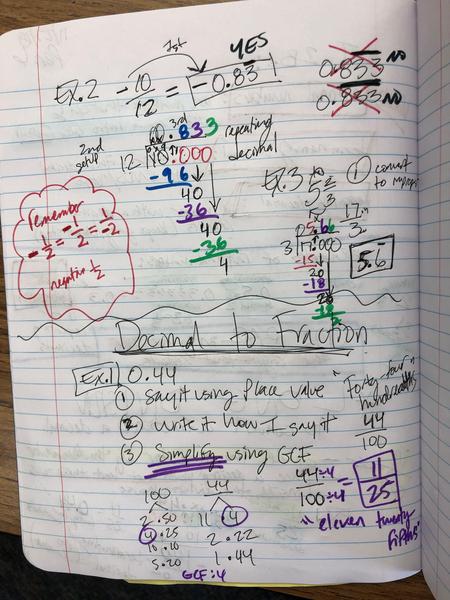 1st
YES
Ex.2 -10/12 = -0.83
0.833 NO
0.833 NO
3rd
0.833 repeating decimal
2nd setup
12 10.000
-96
40
-36
40
-36
4
remember
-1/2 = -1/2 = 1/-2
negative 1/2
Ex.3 5 2/3
① convert to improper
17/3
5.66
3 17.000
-15
20
-18
20
-18
2
5.6
Decimal to Fraction
Ex.1 0.44
① Say it using Place Value "Forty-four hundredths"
② Write it how I say it 44/100
③ Simplify using GCF
44÷4/100÷4 = 11/25
"eleven twenty fifths"
100 44
2·50 11·4
4·25 2·22
10·10 1·44
5·20
GCF:4